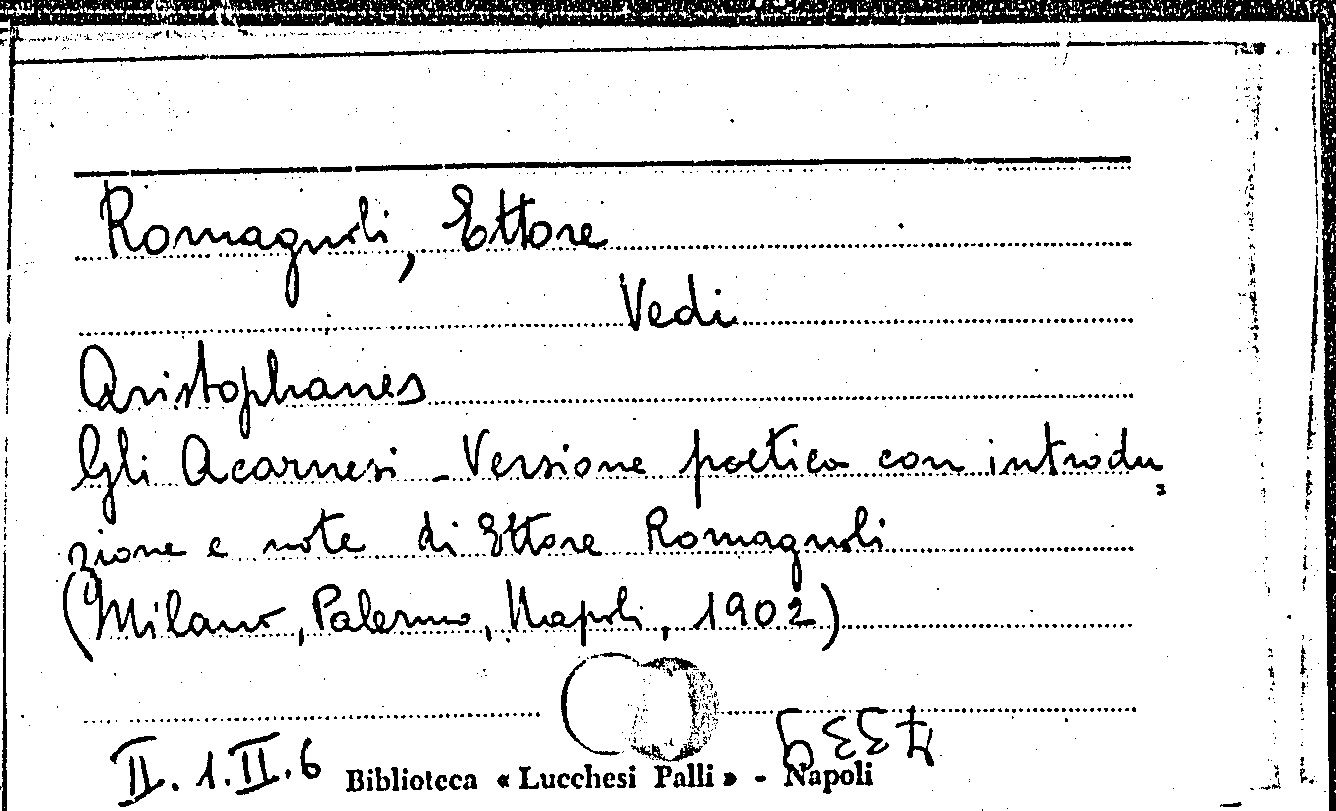 Romagnoli, Ettore
Vedi
Aristophanes
Gli Acarnesi - Versione poetica con introdu
zione e note di Ettore Romagnoli
(Milano, Palermo, Napoli, 1902)
7339
II. 1. II. 6
Biblioteca « Lucchesi Palli » - Napoli